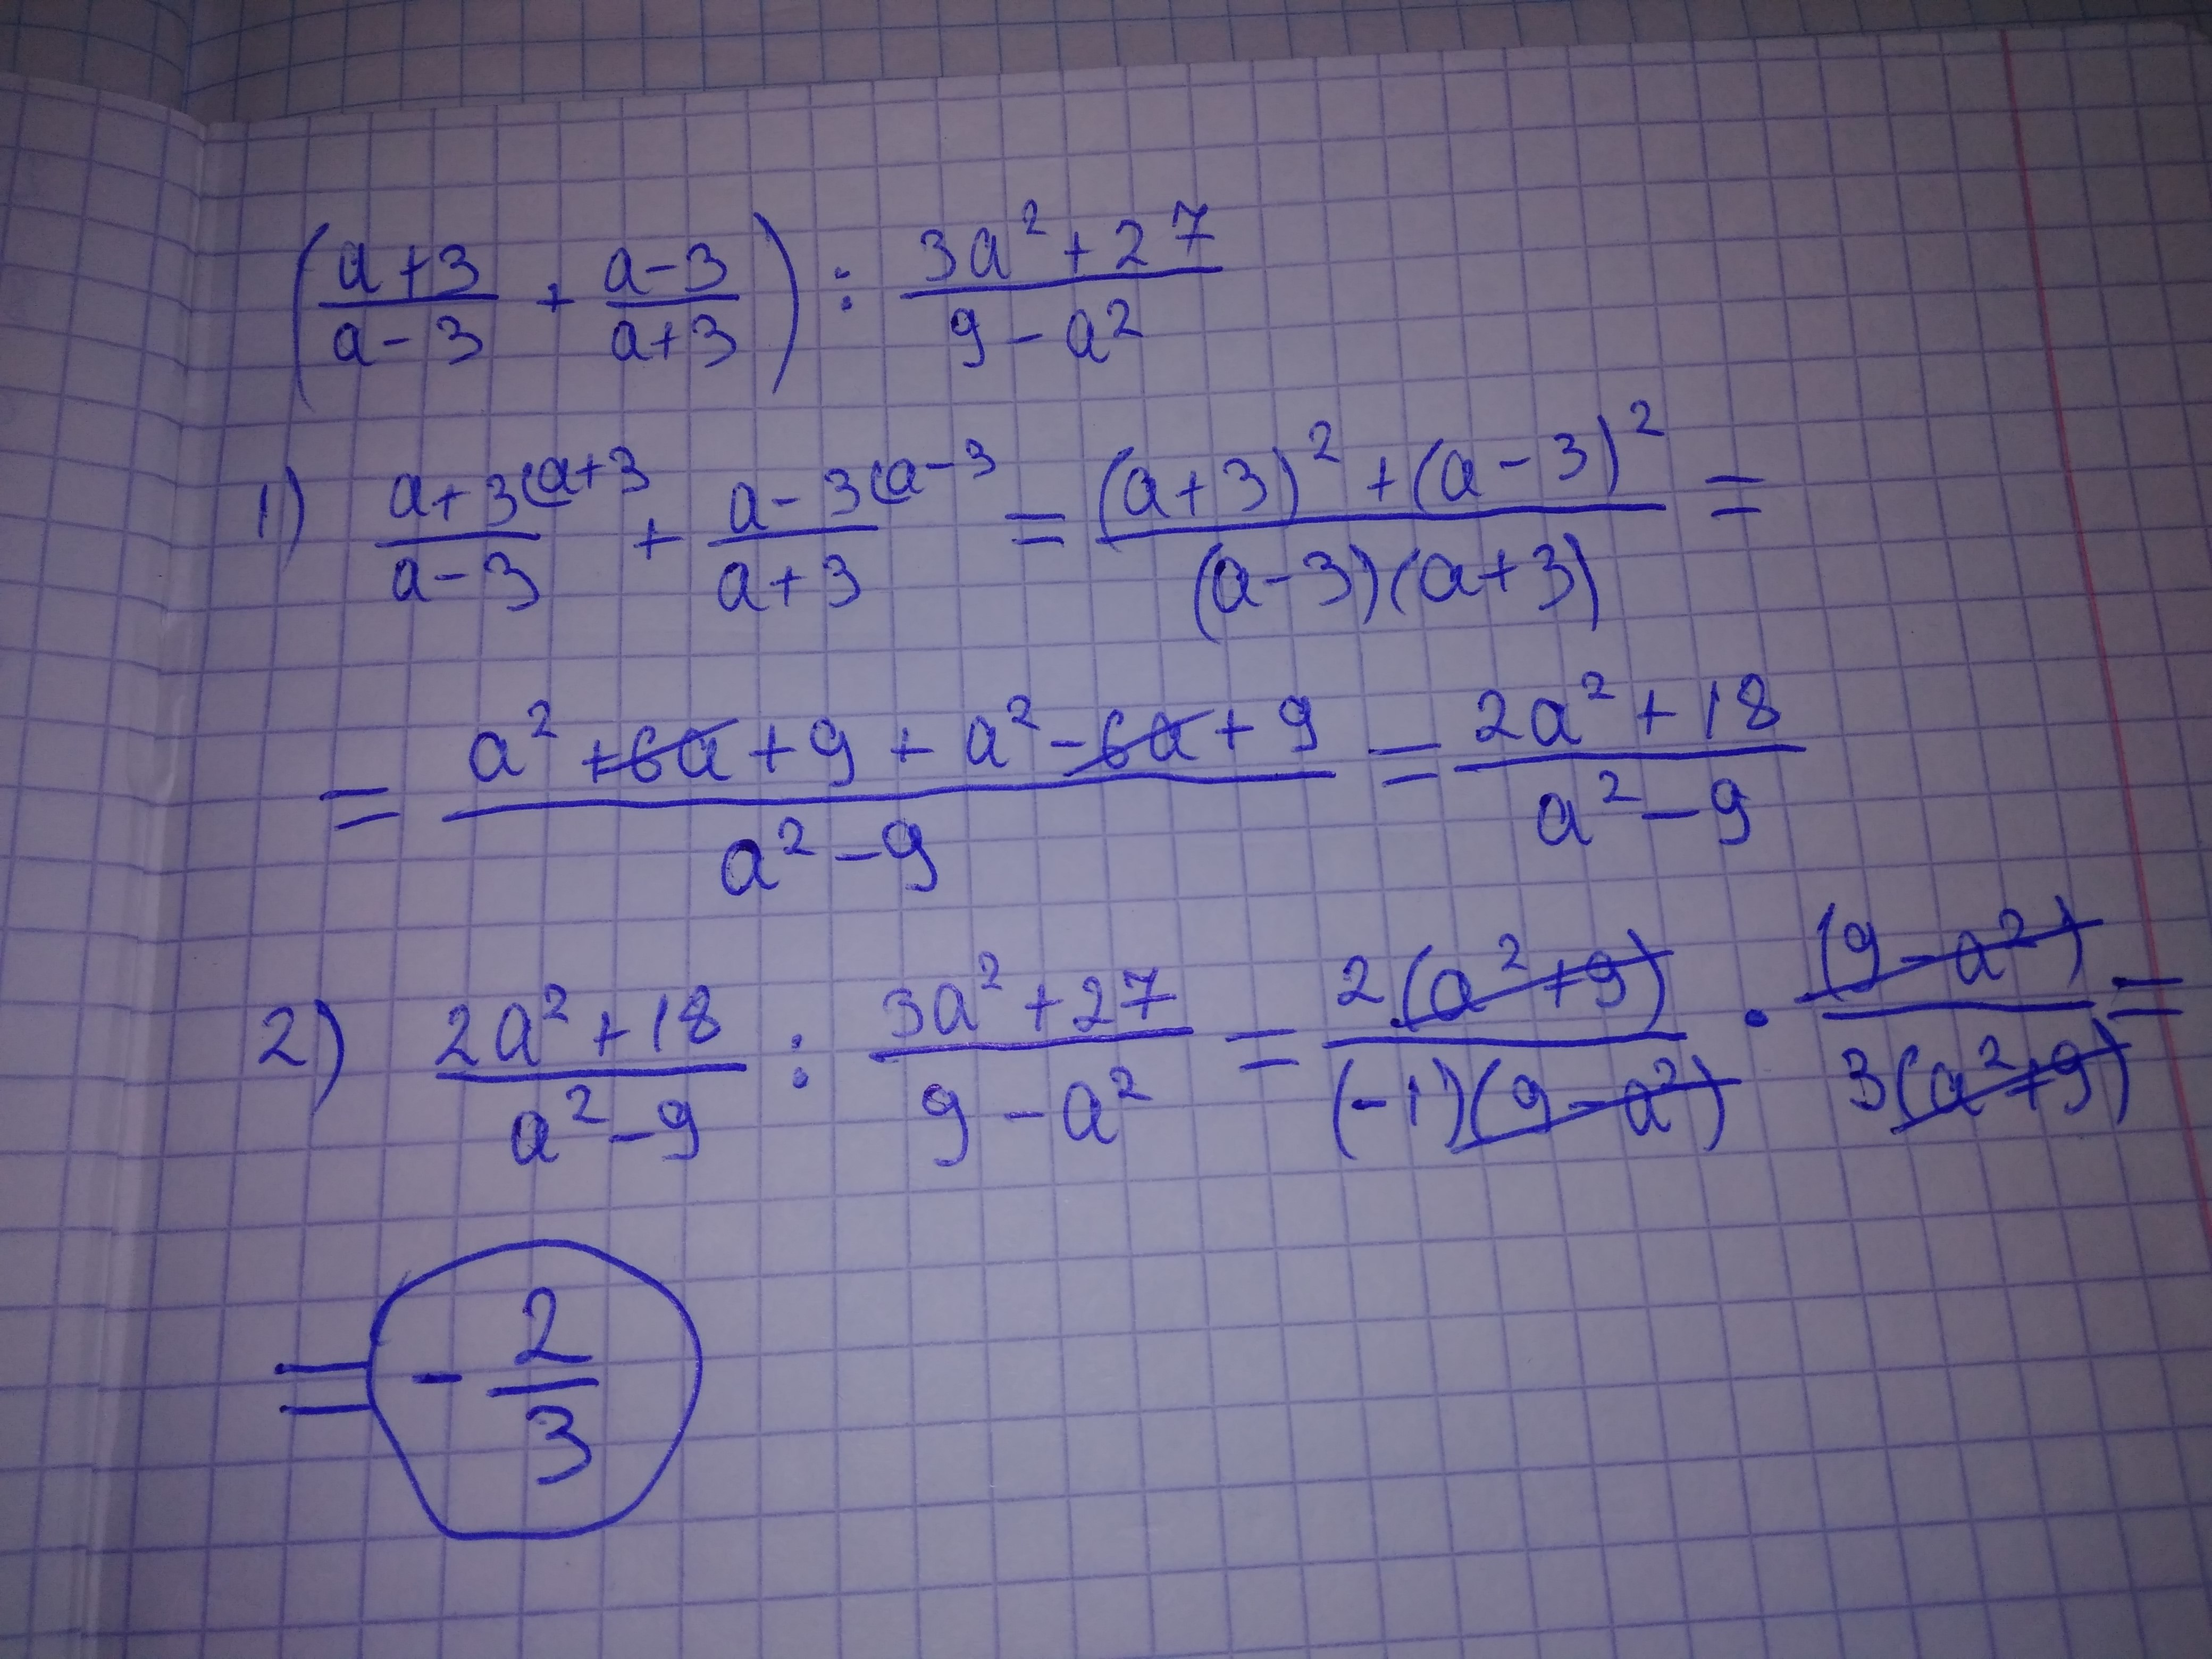 (a+3/a-3 + a-3/a+3) : 3a²+27/9-a²
1) a+3(a+3/a-3 + a-3(a-3/a+3 = (a+3)²+(a-3)²/(a-3)(a+3) =
= a²+6a+9+a²-6a+9/a²-9 = 2a²+18/a²-9
2) 2a²+18/a²-9 : 3a²+27/9-a² = 2(a²+9)/(-1)(9-a²) · (9-a²)/3(a²+9) =
= -2/3